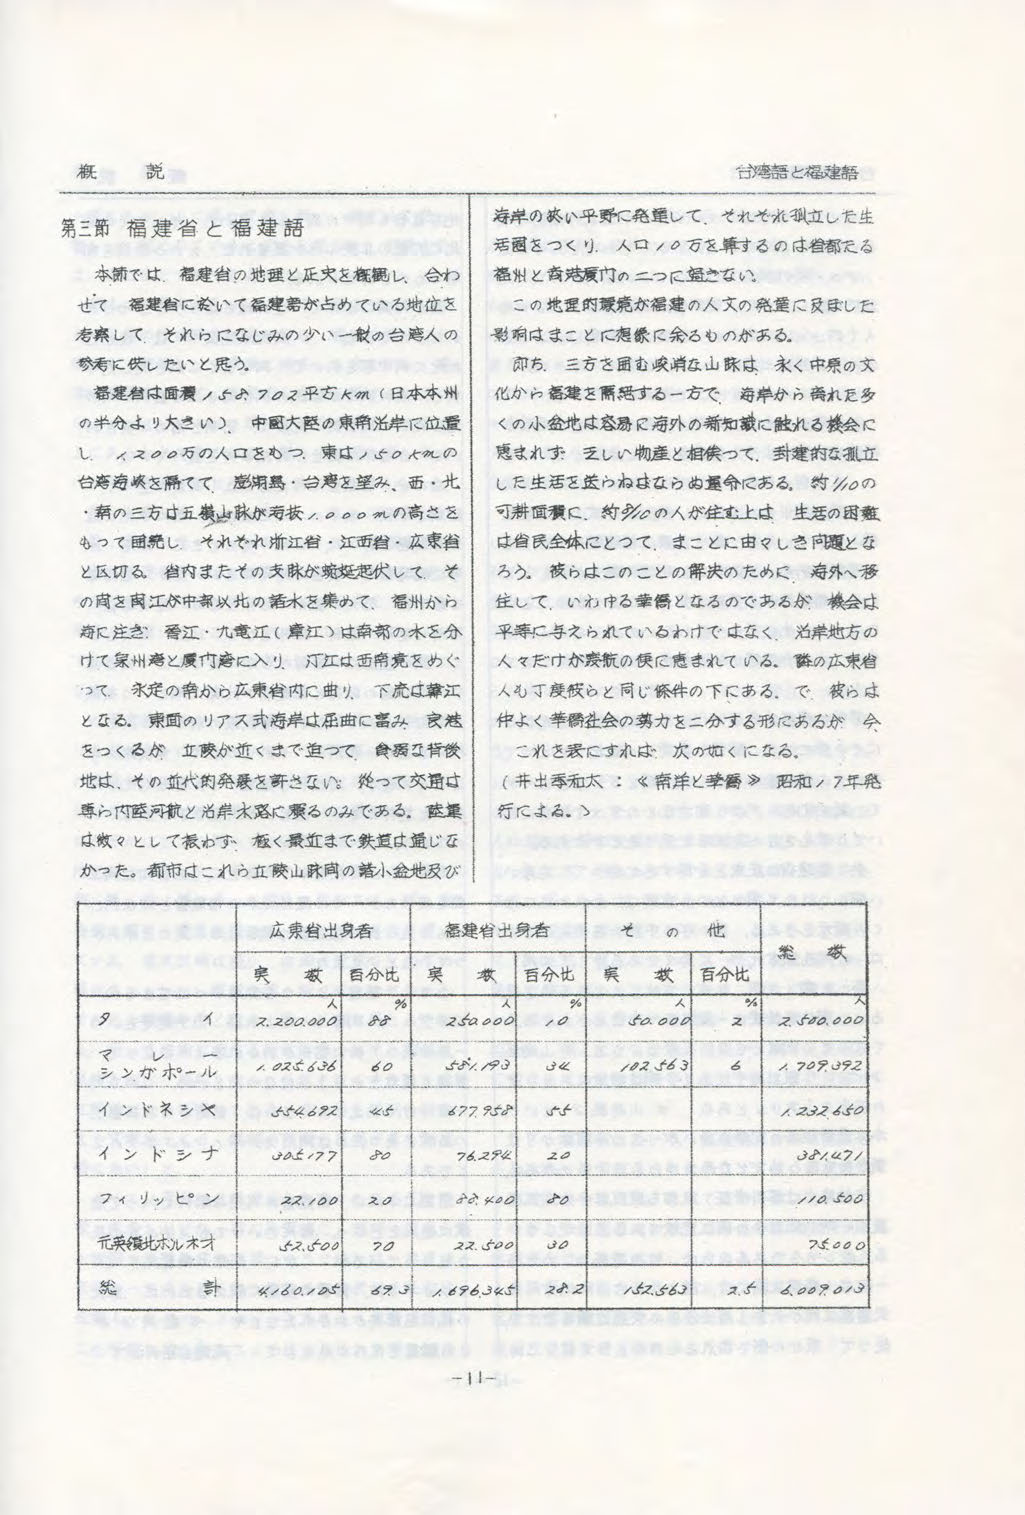 概 説
台湾語と福建語
第三節 福建省と福建語
本節では、福建省の地理と歴史を概観し、合わ
せて 福建省に於いて福建語が占めている地位を
考察して、それらになじみの少い一般の台湾人の
参考に供したいと思う。
福建省は面積158.702平方Km(日本本州
の半分より大きい)、中国大陸の東南沿岸に位置
し、1200万の人口をもつ。東は150Kmの
台湾海峡を隔てて、澎湖島・台湾を望み、西・北
・南の三方は五嶺山脈が海抜1.000mの高さを
もって囲繞し、それぞれ浙江省・江西省・広東省
と区切る。省内またその支脈が蜿蜒起伏して、そ
の間を閩江が中部以北の諸水を集めて、福州から
海に注ぎ、晋江・九竜江(漳江)は南部の水を分
けて泉州湾と厦門湾に入り、汀江は西南境をめぐ
って、永定の南から広東省内に曲り、下流は韓江
となる。東面のリアス式海岸は屈曲に富み、良港
をつくるが、丘陵が近くまで迫って、貧弱な背後
地は、その近代的発展を許さない。従って交通は
専ら内陸河航と沿岸水路に頼るのみである。陸運
は紋々として振わず、極く最近まで鉄道は通じな
かった。都市はこれら丘陵山脈間の諸小盆地及び
海岸の狭い平野に発達して、それぞれ孤立した生
活圏をつくり、人口10万を算するのは省都たる
福州と商港厦門の二つに過ぎない。
この地理的環境が福建の人文の発達に及ぼした
影响はまことに想像に余るものがある。
即ち、三方を囲む峻峭な山脈は、永く中原の文
化から福建を隔絶する一方で、海岸から離れた多
くの小盆地は容易に海外の新知識に触れる機会に
恵まれず、乏しい物産と相俟って、封建的な孤立
した生活を送らねばならぬ運命にある。約1/10の
可耕面積に、約9/10の人が住む上は、生活の困難
は省民全体にとって、まことに由々しき問題とな
ろう。彼らはこのことの解決のために、海外へ移
住して、いわゆる華僑となるのであるが、機会は
平等に与えられているわけではなく、沿岸地方の
人々だけが渡航の便に恵まれている。隣の広東省
人も丁度彼らと同じ條件の下にある。で、彼らは
仲よく華僑社会の勢力を二分する形にあるが、今、
これを表にすれば、次の如くになる。
(井出季和太:≪南洋と華僑≫ 昭和17年発
行による。)
広東省出身者 福建省出身者 そ の 他 総 数
実 数 百分比 実 数 百分比 実 数 百分比
人 % 人 % 人 % 人
タ イ 2.200.000 88 250.000 10 50.000 2 2.500.000
マ レ ー
シンガポール 1.025.636 60 581.193 34 102.563 6 1.709.392
インドネシヤ 554.692 45 677.958 55 1.232.650
インドシナ 305.177 80 76.294 20 381.471
フィリッピン 22.100 20 88.400 80 110.500
元英領北ボルネオ 52.500 70 22.500 30 75.000
総 計 4.160.105 69.3 1.696.345 28.2 152.563 2.5 6.009.013
-11-